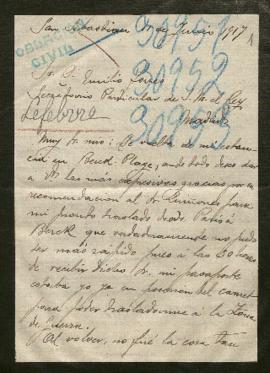 San Sebastian de Enero 1917
30951
OBRERO CIVIL
30952
Sr. D. Emilio Torres
Secretario Particular de S. M. el Rey
Madrid
Lefebvre
30953
Muy Sr. mio: De vuelta de mi estan-
cia en Berck-Plage, ante todo deseo dar
a V. las más expresivas gracias por su
recomendacion al Sr. para
mi pronto traslado desde Paris á
Berck que verdaderamente no pudo
ser más rápido pues a las 30 horas
de recibir dicho Sr. mi pasaporte
estaba yo ya en posesion del carnet
para poder trasladarme a la Zona
de Guerra.
Al volver, no fué la cosa tan